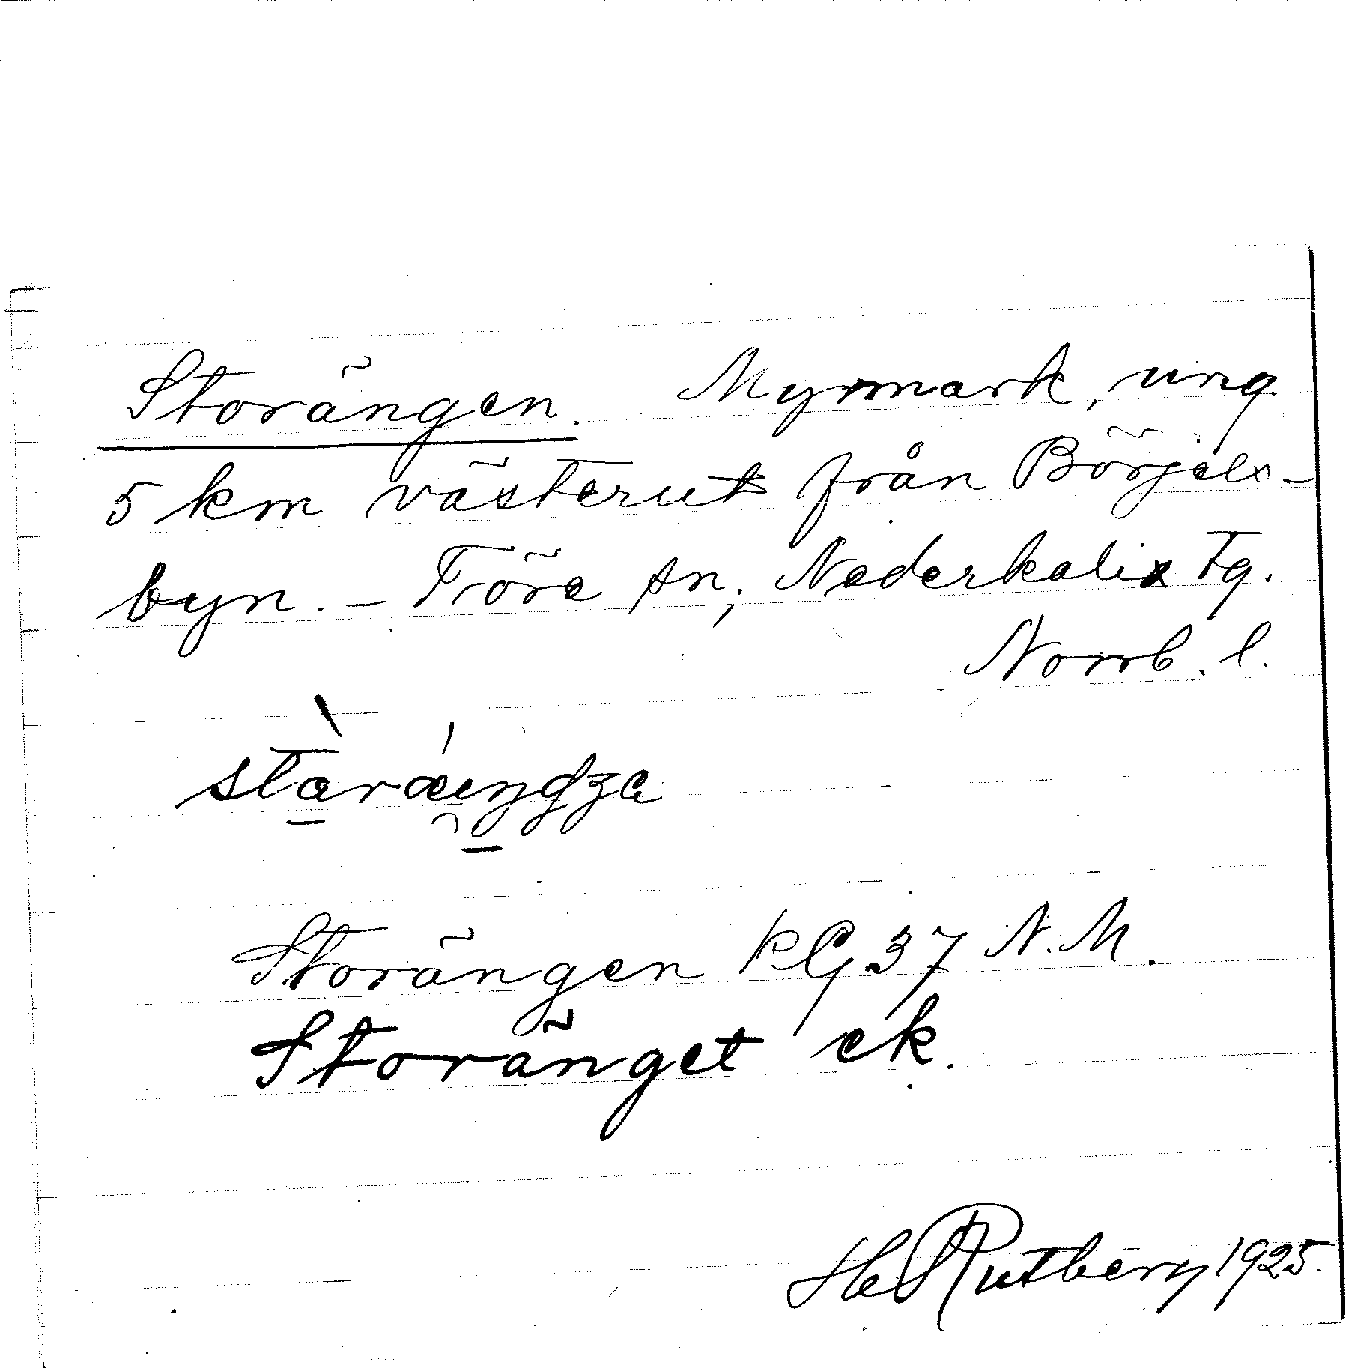 Storängen. Myrmark, ung
5 km västerut från Börjels-
byn. – Töre sn, Nederkalix tg.
Norrb. l.
Storängen KG 37 N. M.
Storänget ek.
H Rutberg 1925.